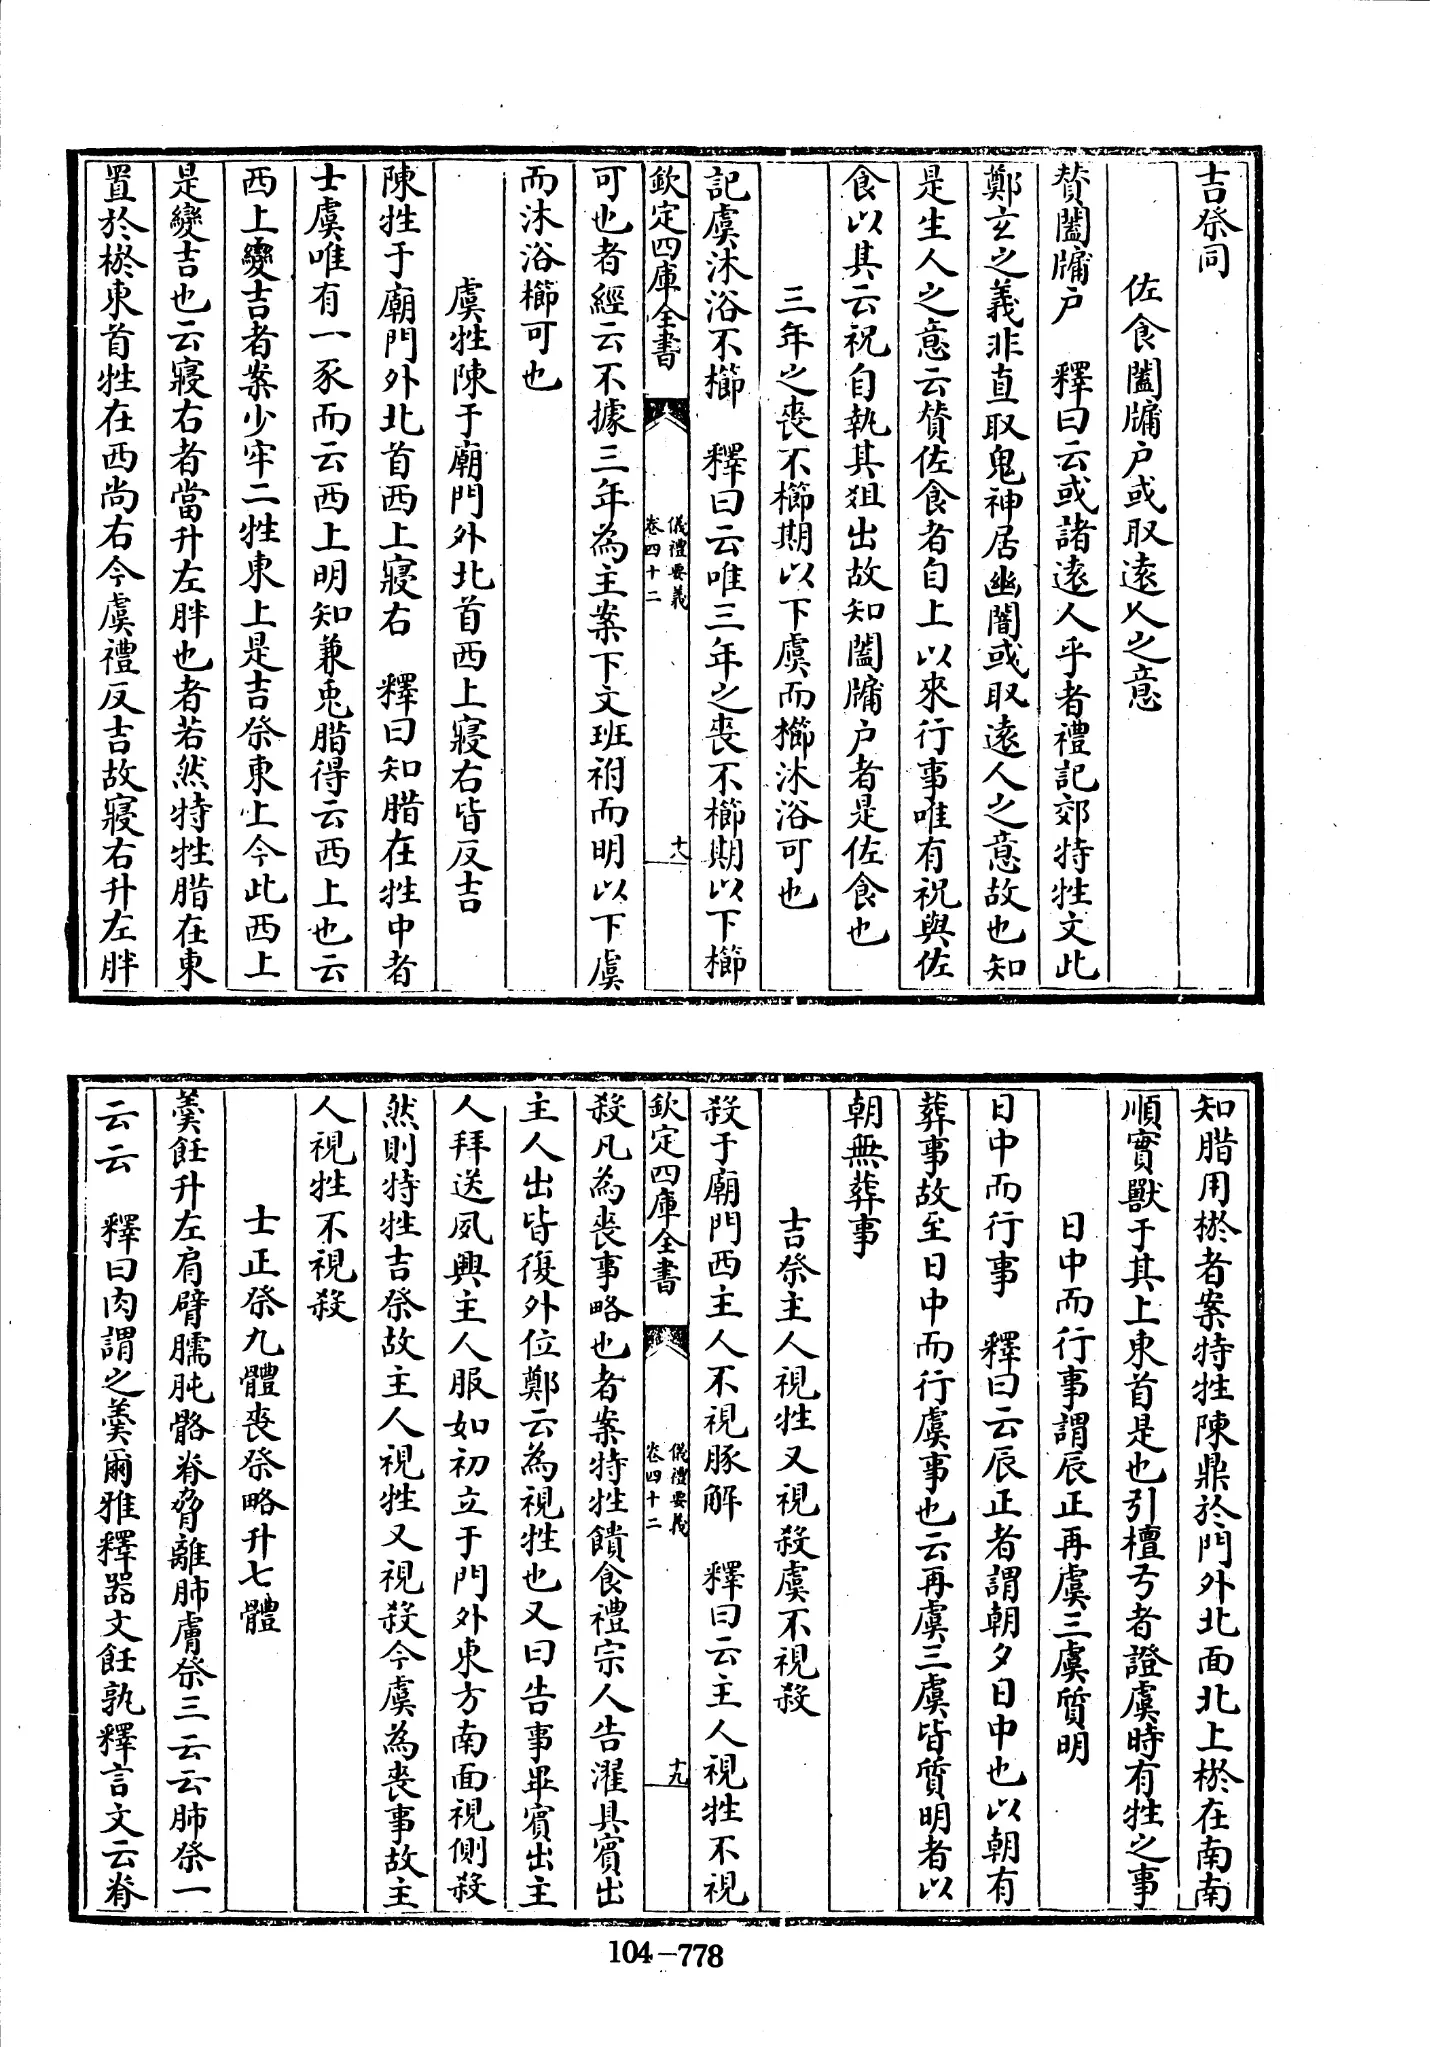 吉祭同
佐食闔牖户或取逺人之意
賛闔牖户　釋曰云或諸逺人乎者禮記郊特牲文此
鄭玄之義非直取鬼神居幽闇或取逺人之意故也知
是生人之意云賛佐食者自上以來行事唯有祝與佐
食以其云祝自執其俎出故知闔牖户者是佐食也
三年之喪不櫛期以下虞而櫛沐浴可也
記虞沐浴不櫛　釋曰云唯三年之喪不櫛期以下櫛
欽定四庫全書　儀禮要義 卷四十二　十八
可也者經云不據三年為主案下文班祔而明以下虞
而沐浴櫛可也
虞牲陳于廟門外北首西上寝右皆反吉
陳牲于廟門外北首西上寝右　釋曰知腊在牲中者
士虞唯有一豕而云西上明知兼兎腊得云西上也云
西上變吉者案少牢二牲東上是吉祭東上今此西上
是變吉也云寝右者當升左胖也者若然特牲腊在東
置於棜東首牲在西尚右今虞禮反吉故寝右升左胖
知腊用棜者案特牲陳鼎於門外北面北上棜在南南
順實獸于其上東首是也引檀弓者證虞時有牲之事
日中而行事謂辰正再虞三虞質明
日中而行事　釋曰云辰正者謂朝夕日中也以朝有
葬事故至日中而行虞事也云再虞三虞皆質明者以
朝無葬事
吉祭主人視牲又視殺虞不視殺
殺于廟門西主人不視豚解　釋曰云主人視牲不視
欽定四庫全書　儀禮要義 卷四十二　十九
殺凡為喪事略也者案特牲饋食禮宗人告濯具賓出
主人出皆復外位鄭云為視牲也又曰告事畢賓出主
人拜送夙興主人服如初立于門外東方南面視側殺
然則特牲吉祭故主人視牲又視殺今虞為喪事故主
人視牲不視殺
士正祭九體喪祭略升七體
羮飪升左肩臂臑肫骼脊脅離肺膚祭三云云肺祭一
云云　釋曰肉謂之羮爾雅釋器文飪孰釋言文云脊
104-778